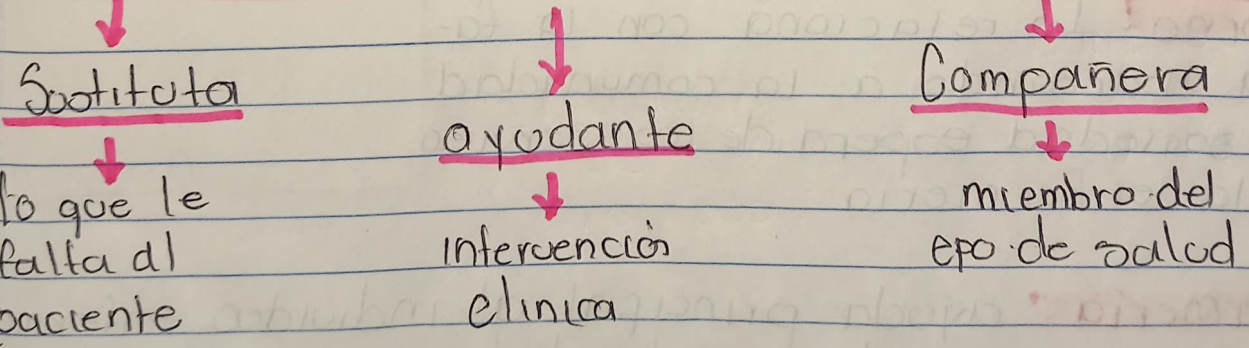 Sostituta
lo que le
falta al
paciente
ayudante
intervención
clinica
Compañera
miembro del
epo de salud